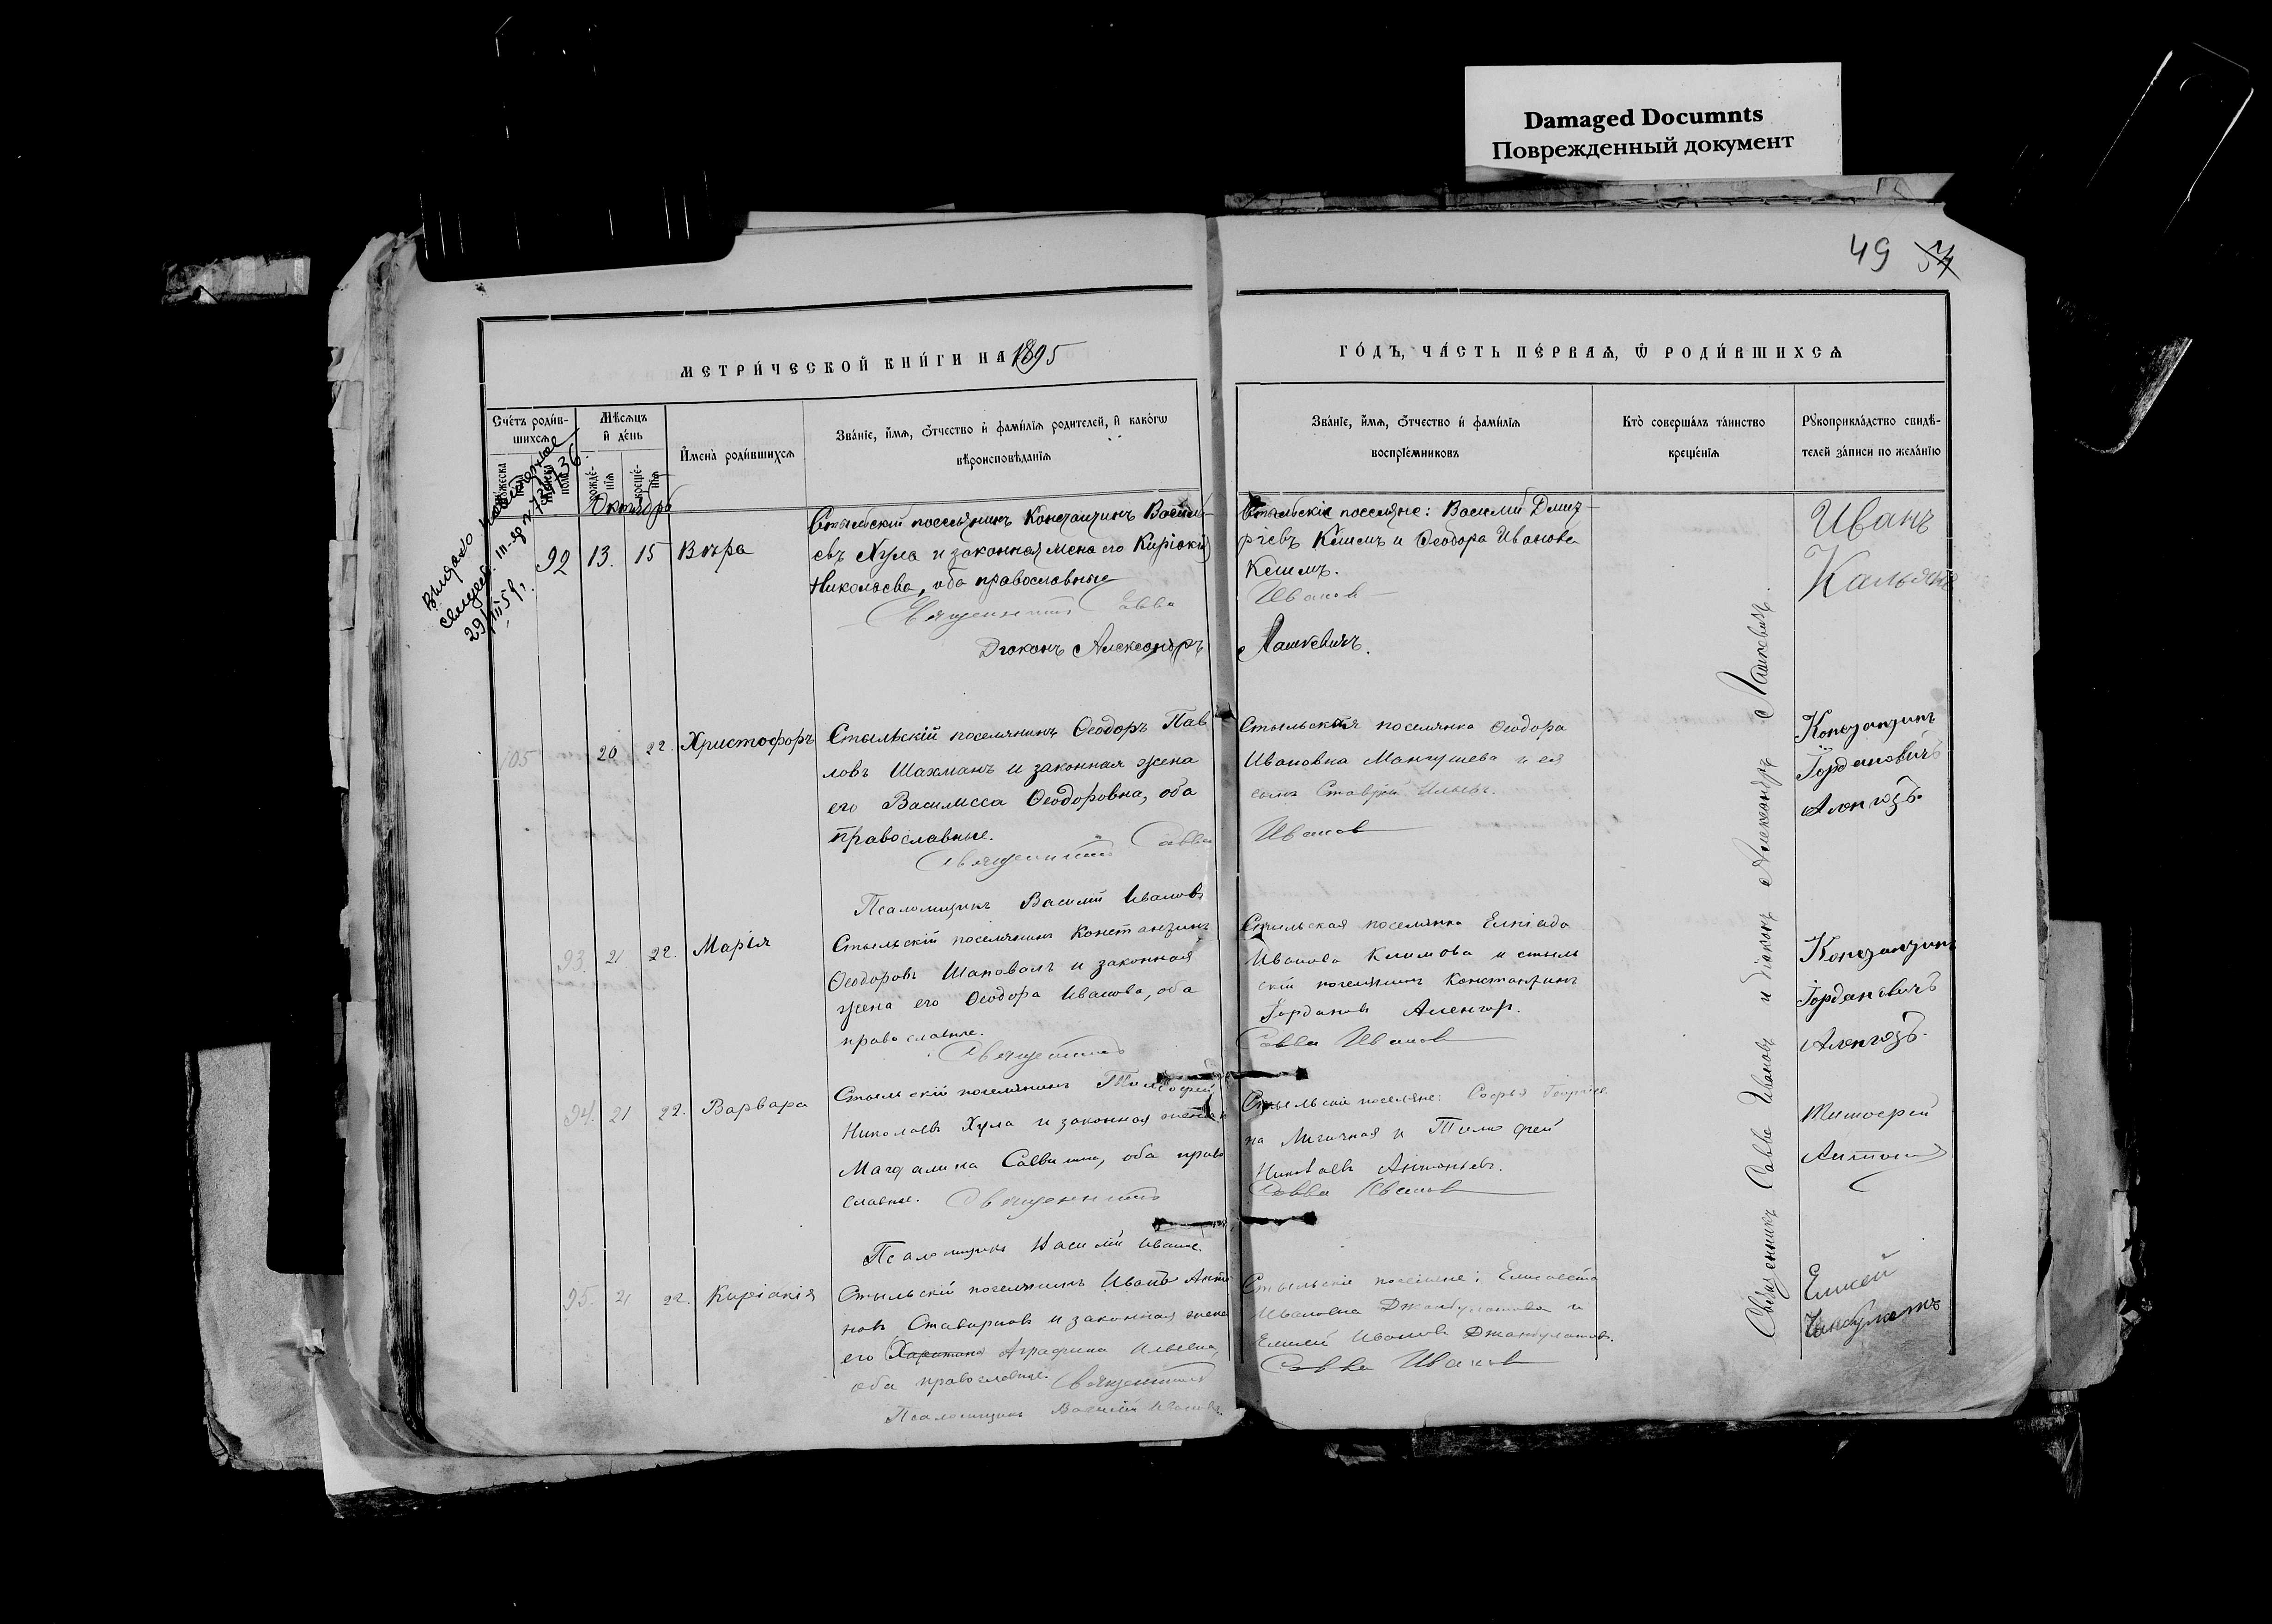 Damaged Documnts
Поврежденный документ
49
МЕТРИ́ЧЕСКОЙ КНИ́ГИ НА 1895
ГО́ДЪ, ЧА́СТЬ ПЕ́РВАѦ, Ѿ РОДИ́ВШИХСѦ
Сче́тъ роди́в-
шихсѧ
Мѣ́сѧцъ
и҆ де́нь
И҆мена̀ роди́вшихсѧ
Зва́нїе, и҆́мѧ, ѻ҆́тчество и҆ фами́лїѧ родителей, и҆ како́гѡ
вѣроисповѣ́данїѧ
Зва́нїе, и҆́мѧ, ѻ҆́тчество и҆ фами́лїѧ
воспрїе́мниковъ
Кто̀ соверша́лъ та́инство
креще́нїѧ
Рꙋкоприкла́дство свидѣ́-
телей за́писи по жела́нїю
рожде́-
нїѧ
креще́-
нїѧ
Октябрь
92 13. 15 Вѣра
Стыльскій поселянинъ Константинъ Василь-
евъ Хула и законная жена его Киріакія
Николаева, оба православные
Священникъ Савва
Діаконъ Александръ
Стыльскіе поселяне: Василій Дмит-
ріевъ Кешмъ и Ѳеодора Иванова
Кешмъ.
Иванов
Лашкевичъ.
Иванъ
105 20 22. Христофоръ
Стыльскій поселянинъ Ѳеодоръ Пав
ловъ Шахманъ и законная жена
его Василисса Ѳеодоровна, оба
православные.
Священникъ Савва
Псаломщикъ Василій Ивановъ
Стыльская поселянка Ѳеодора
Ивановна Мангушева и ея
сынъ Ставрій Ильевъ.
Иванов
Константинъ
Іордановичъ
93. 21 22. Марія
Стыльскій поселянинъ Константинъ
Ѳеодоровъ Шаповалъ и законная
жена его Ѳеодора Иванова, оба
православные.
Священникъ
Стыльская поселянка Елпіада
Иванова Климова и стыль
скій поселянинъ Константинъ
Іордановъ
Савва Иванов
Константинъ
Іордановичъ
94. 21 22. Варвара
Стыльскій поселянинъ Тимофей
Николаевъ Хула и законная жена
Магдалина Саввична, оба право
славные. Священникъ
Псаломщикъ Василій Иванов.
Стыльскіе поселяне: Софья Георгіев
на и Тимофей
Николаевъ Антоновъ.
Савва Иванов
Тимофей
95. 21 22. Киріакія
Стыльскій поселянинъ Иванъ Анто
новъ Ставриновъ и законная жена
его Харитина Аграфина Ильевна,
оба православные. Священникъ
Псаломщикъ Василій Ивановъ
Стыльскіе поселяне: Елисавета
Ивановна Джанбулатова и
Елисей Ивановъ Джанбулатовъ.
Савва Иванов
Елисей
Священникъ Савва Ивановъ и діаконъ Александръ Лашкевичъ.